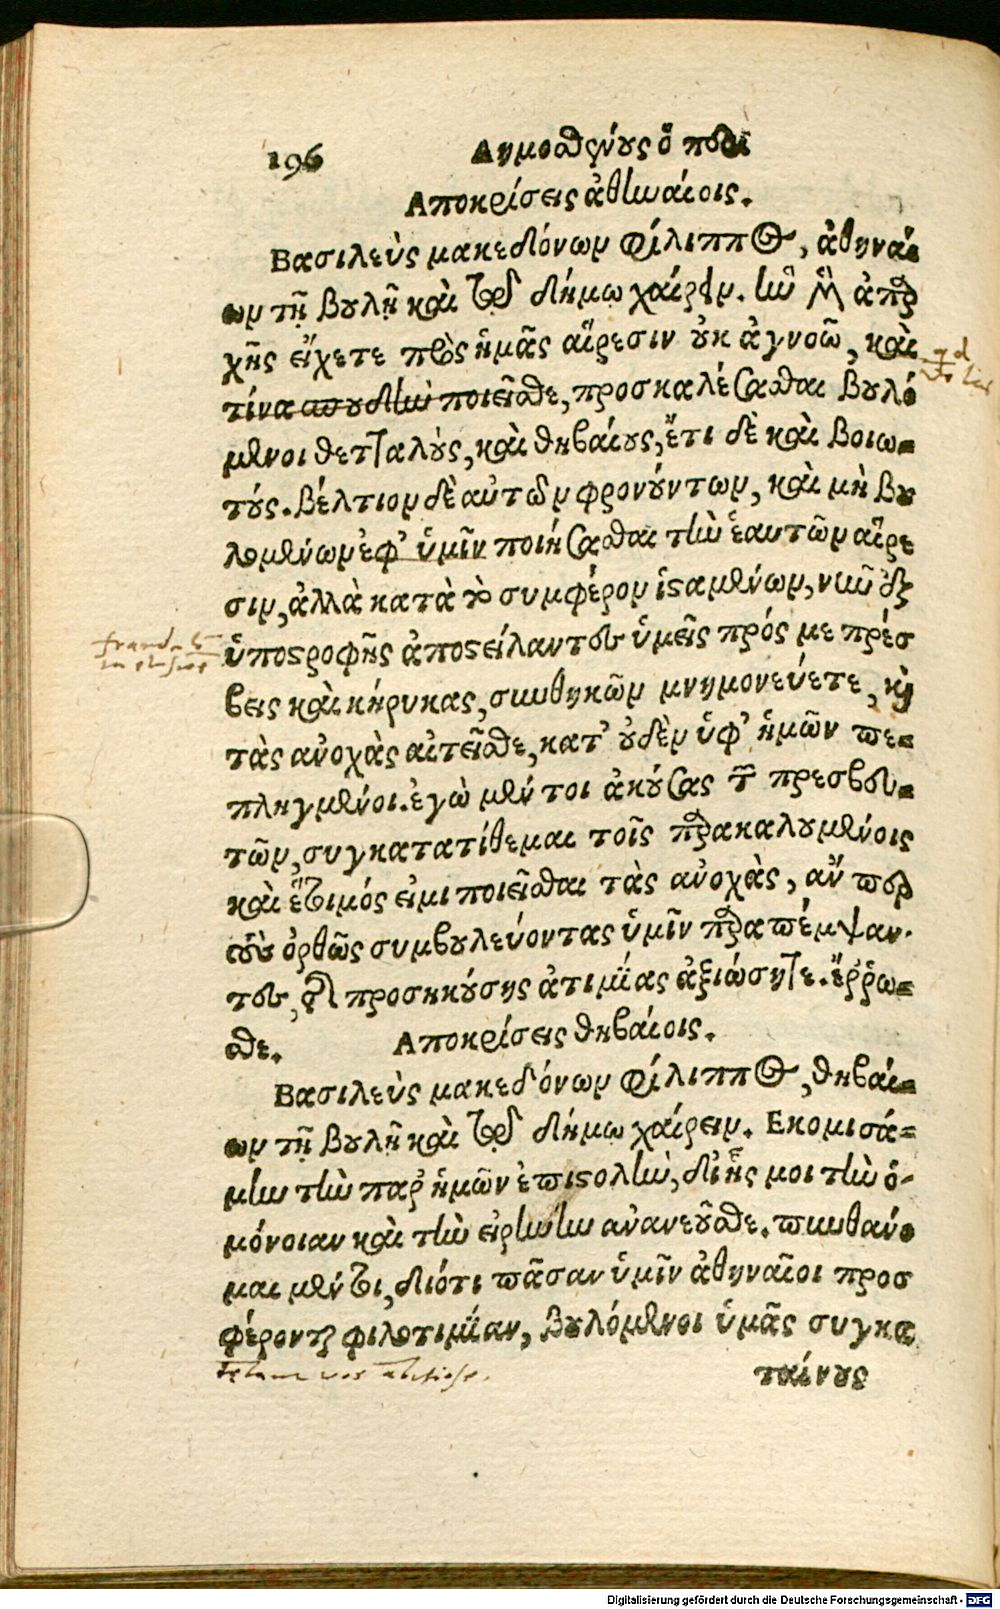 196 Δημοσθένους ὁ περὶ
Αποκρίσεις ἀθηναίοις.
Βασιλεὺς μακεδόνων φίλιππος, ἀθηναί
ων τῇ βουλῇ καὶ τῷ δήμῳ χαίρειν. ἣν μὲν ἀπαρ
χῆς εἴχετε πρὸς ἡμᾶς αἵρεσιν οὐκ ἀγνοῶ, καὶ
τίνα σπουδὴν ποιεῖσθε, προσκαλέσασθαι βουλό
μενοι θετταλοὺς, καὶ θηβαίους, ἔτι δὲ καὶ βοιω-
τούς. βέλτιον δὲ αὐτῶν φρονούντων, καὶ μὴ βου
λομένων ἐφ' ὑμῖν ποιήσασθαι τὴν ἑαυτῶν αἵρε
σιν, ἀλλὰ κατὰ τὸ συμφέρον ἱσταμένων, νῦν ἐξ
ὑποστροφῆς ἀποστείλαντες ὑμεῖς πρός με πρέσ
βεις καὶ κήρυκας, συνθηκῶν μνημονεύετε, καὶ
τὰς ἀνοχὰς αἰτεῖσθε, κατ' οὐδὲν ὑφ' ἡμῶν πε-
πληγμένοι. ἐγὼ μέν τοι ἀκούσας τῶν πρεσβευ-
τῶν, συγκατατίθεμαι τοῖς παρακαλουμένοις
καὶ ἕτοιμός εἰμι ποιεῖσθαι τὰς ἀνοχὰς, ἄν περ
τοὺς ὀρθῶς συμβουλεύοντας ὑμῖν παραπέμψαν.
τες, τῆς προσηκούσης ἀτιμίας ἀξιώσητε. ἔῤῥω-
σθε. Αποκρίσεις θηβαίοις.
Βασιλεὺς μακεδόνων φίλιππος, θηβαί-
ων τῇ βουλῇ καὶ τῷ δήμῳ χαίρειν. Εκομισά-
μην τὴν παρ' ἡμῶν ἐπιστολὴν, δι' ἧς μοι τὴν ὁ-
μόνοιαν καὶ τὴν εἰρήνην ἀνανεοῦσθε. πυνθάνο
μαι μέν τοι, διότι πᾶσαν ὑμῖν ἀθηναῖοι προσ
φέρονται φιλοτιμίαν, βουλόμενοι ὑμᾶς συγκα
ταίνους
Digitalisierung gefördert durch die Deutsche Forschungsgemeinschaft - DFG